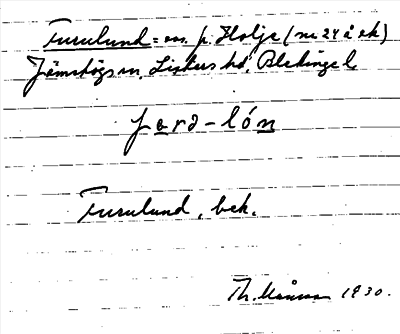 Furulund = ö. p. Holje (nr 24 å ek)
Jämshögs sn, Listers hd, Blekinge l.
fərə-lón
Furulund, bek.
Th. Månsson 1930.